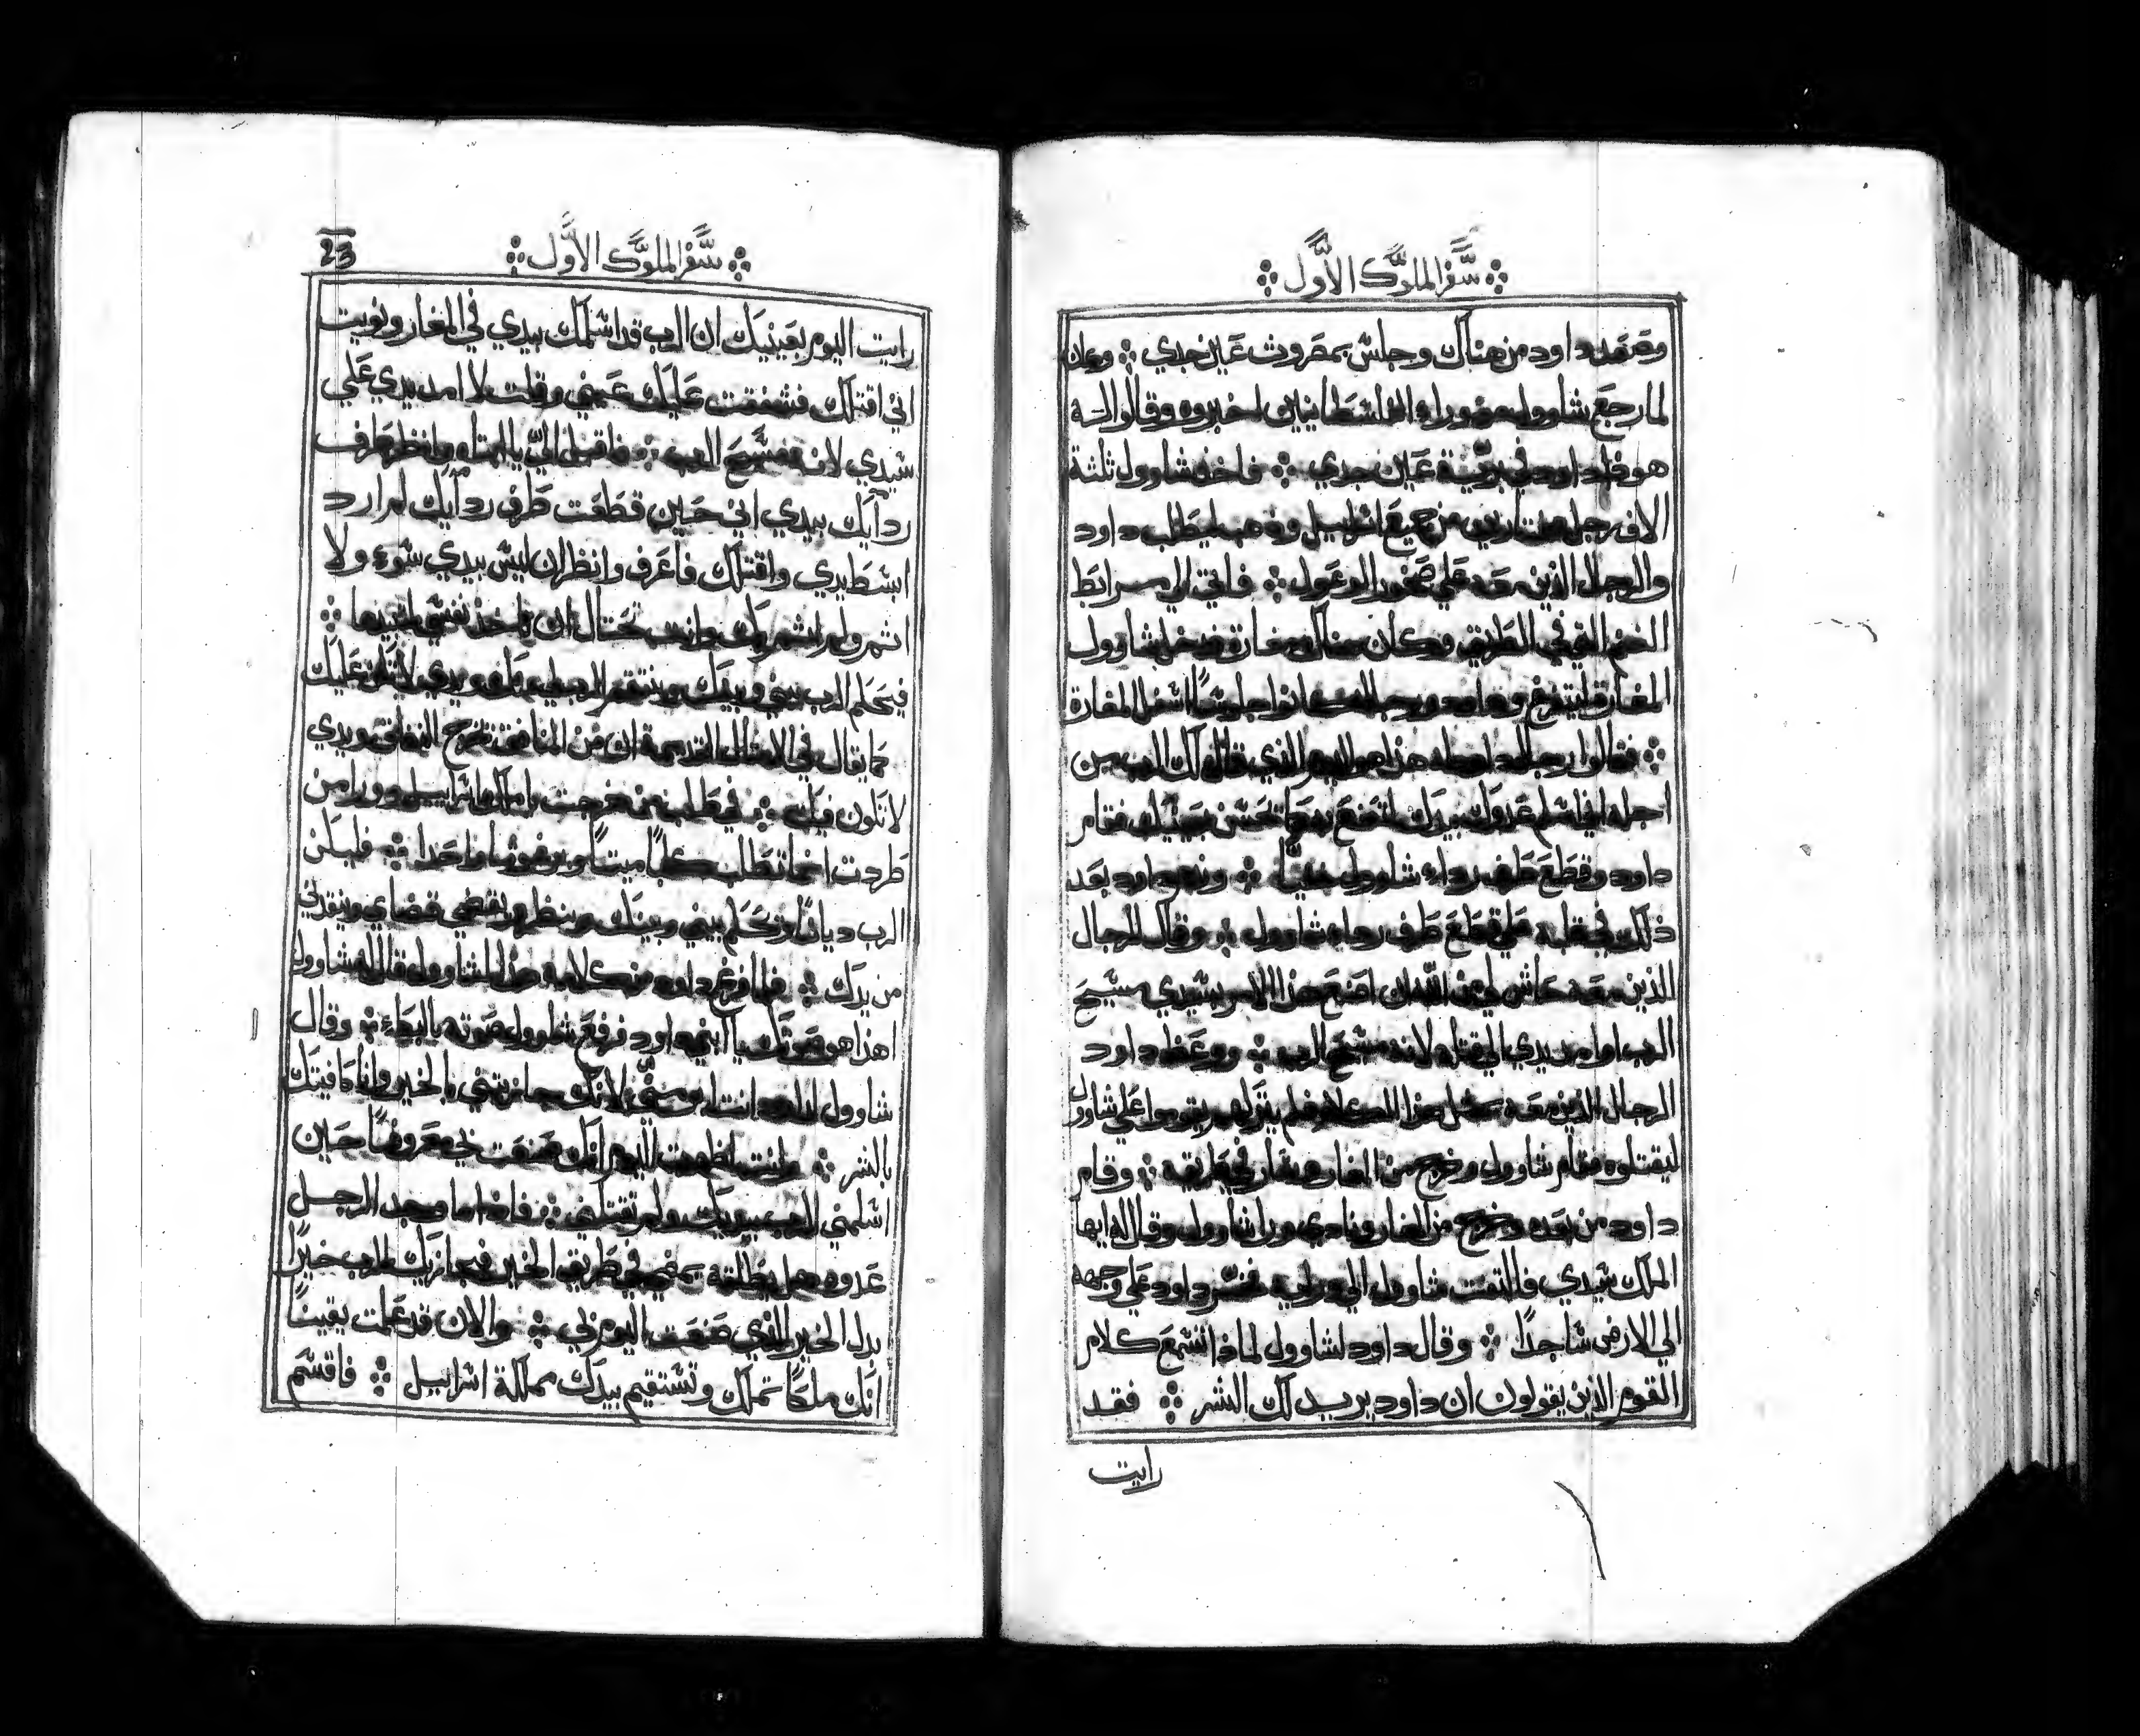 سفر الملوك الاول
وصعد داود من هناك وجلس بمصروث عين جدي وكان
لما رجع شاوول من وراء الفلسطانيين اخبروه وقالوا
هوذا داود في برية عين جدي فاخذ شاوول ثلثة
الاف رجل من جميع اسراييل وذهب ليطلب داود
والرجال الذين معه علي صخور الوعول فاتي الي مرابط
الغنم التي في الطريق وكان هناك مغارة فدخل شاوول
المغارة وداود ورجاله كانوا جلوسًا اسفل المغارة
فقالوا رجال داود له هذا هو اليوم الذي قال لك الرب من
اجله اني اسلم عدوك بيدك لتصنع به ما تحسن بعينيك فقام
داود وقطع طرف رداء شاوول وندم داود بعد
ذلك في قلبه علي قطع طرف رداء شاوول وقال للرجال
الذين معه حاش لي من الله ان اصنع هذا الامر بسيدي مسيح
الرب او امد يدي الي قتله لانه مسيح الرب ووعظ داود
الرجال الذين معه بمثل هذا الكلام فلم يتركهم يقوموا علي شاوول
ليقتلوه فقام شاوول وخرج من المغار وسار في طريقه وقام
داود من بعده وخرج من المغار ونادي ورا شاوول وقال له ايها
الملك سيدي فالتفت شاوول الي ورايه فخر داود علي وجهه
الي الارض ساجدًا وقال داود لشاوول لماذا تسمع كلام
القوم الذين يقولون ان داود يريد لك الشر فقد
رايت
سفر الملوك الاول
23
رايت اليوم بعينيك ان الرب قد اسلمك بيدي في المغار ونويت
اني اقتلك فشفقت عليك عيني وقلت لا امد يدي علي
سيدي لانه مسيح الرب فاقبل الي يا ابتاه وانظر طرف
ردايك بيدي اني حين قطعت طرف ردايك لم ارد
ابسط يدي واقتلك فاعرف وانظر ان ليس بيدي سوء ولا
اثم ولم وانت تحتال ان تاخذ نفسي
فيحكم الرب بيني وبينك وينتقم الرب لي منك ويدي لا تكن عليك
كما يقال في الامثال القديمة ان من المنافق تخرج النفاق ويدي
لا تكون فيك في طلب من خرجت يا ملك اسراييل وورا من
طردت انما تطلب كلبًا ميتًا وبرغوثا واحدا فليكن
الرب ديانًا ويحكم بيني وبينك وينظر ويقضي قضاي وينقذني
من يدك فلما فرغ داود من كلامه هذا لشاوول قال له شاوول
اهذا هو صوتك يا ابني داود فرفع شاوول صوته بالبكاء وقال
شاوول لداود انت ابر مني لانك جازيتني بالخير وانا كافيتك
بالشر وانت اظهرت اليوم انك صنعت لي معروفًا حين
اسلمني الرب بيديك ولم تقتلني فاذا ما وجد الرجل
عدوه هل يطلقه يمضي في طريق الخير فيجازيك الرب خيرًا
بدل الخير الذي صنعت اليوم بي والان قد علمت يقينًا
انك ملكًا تملك وتستقيم بيدك مملكة اسراييل فاقسم